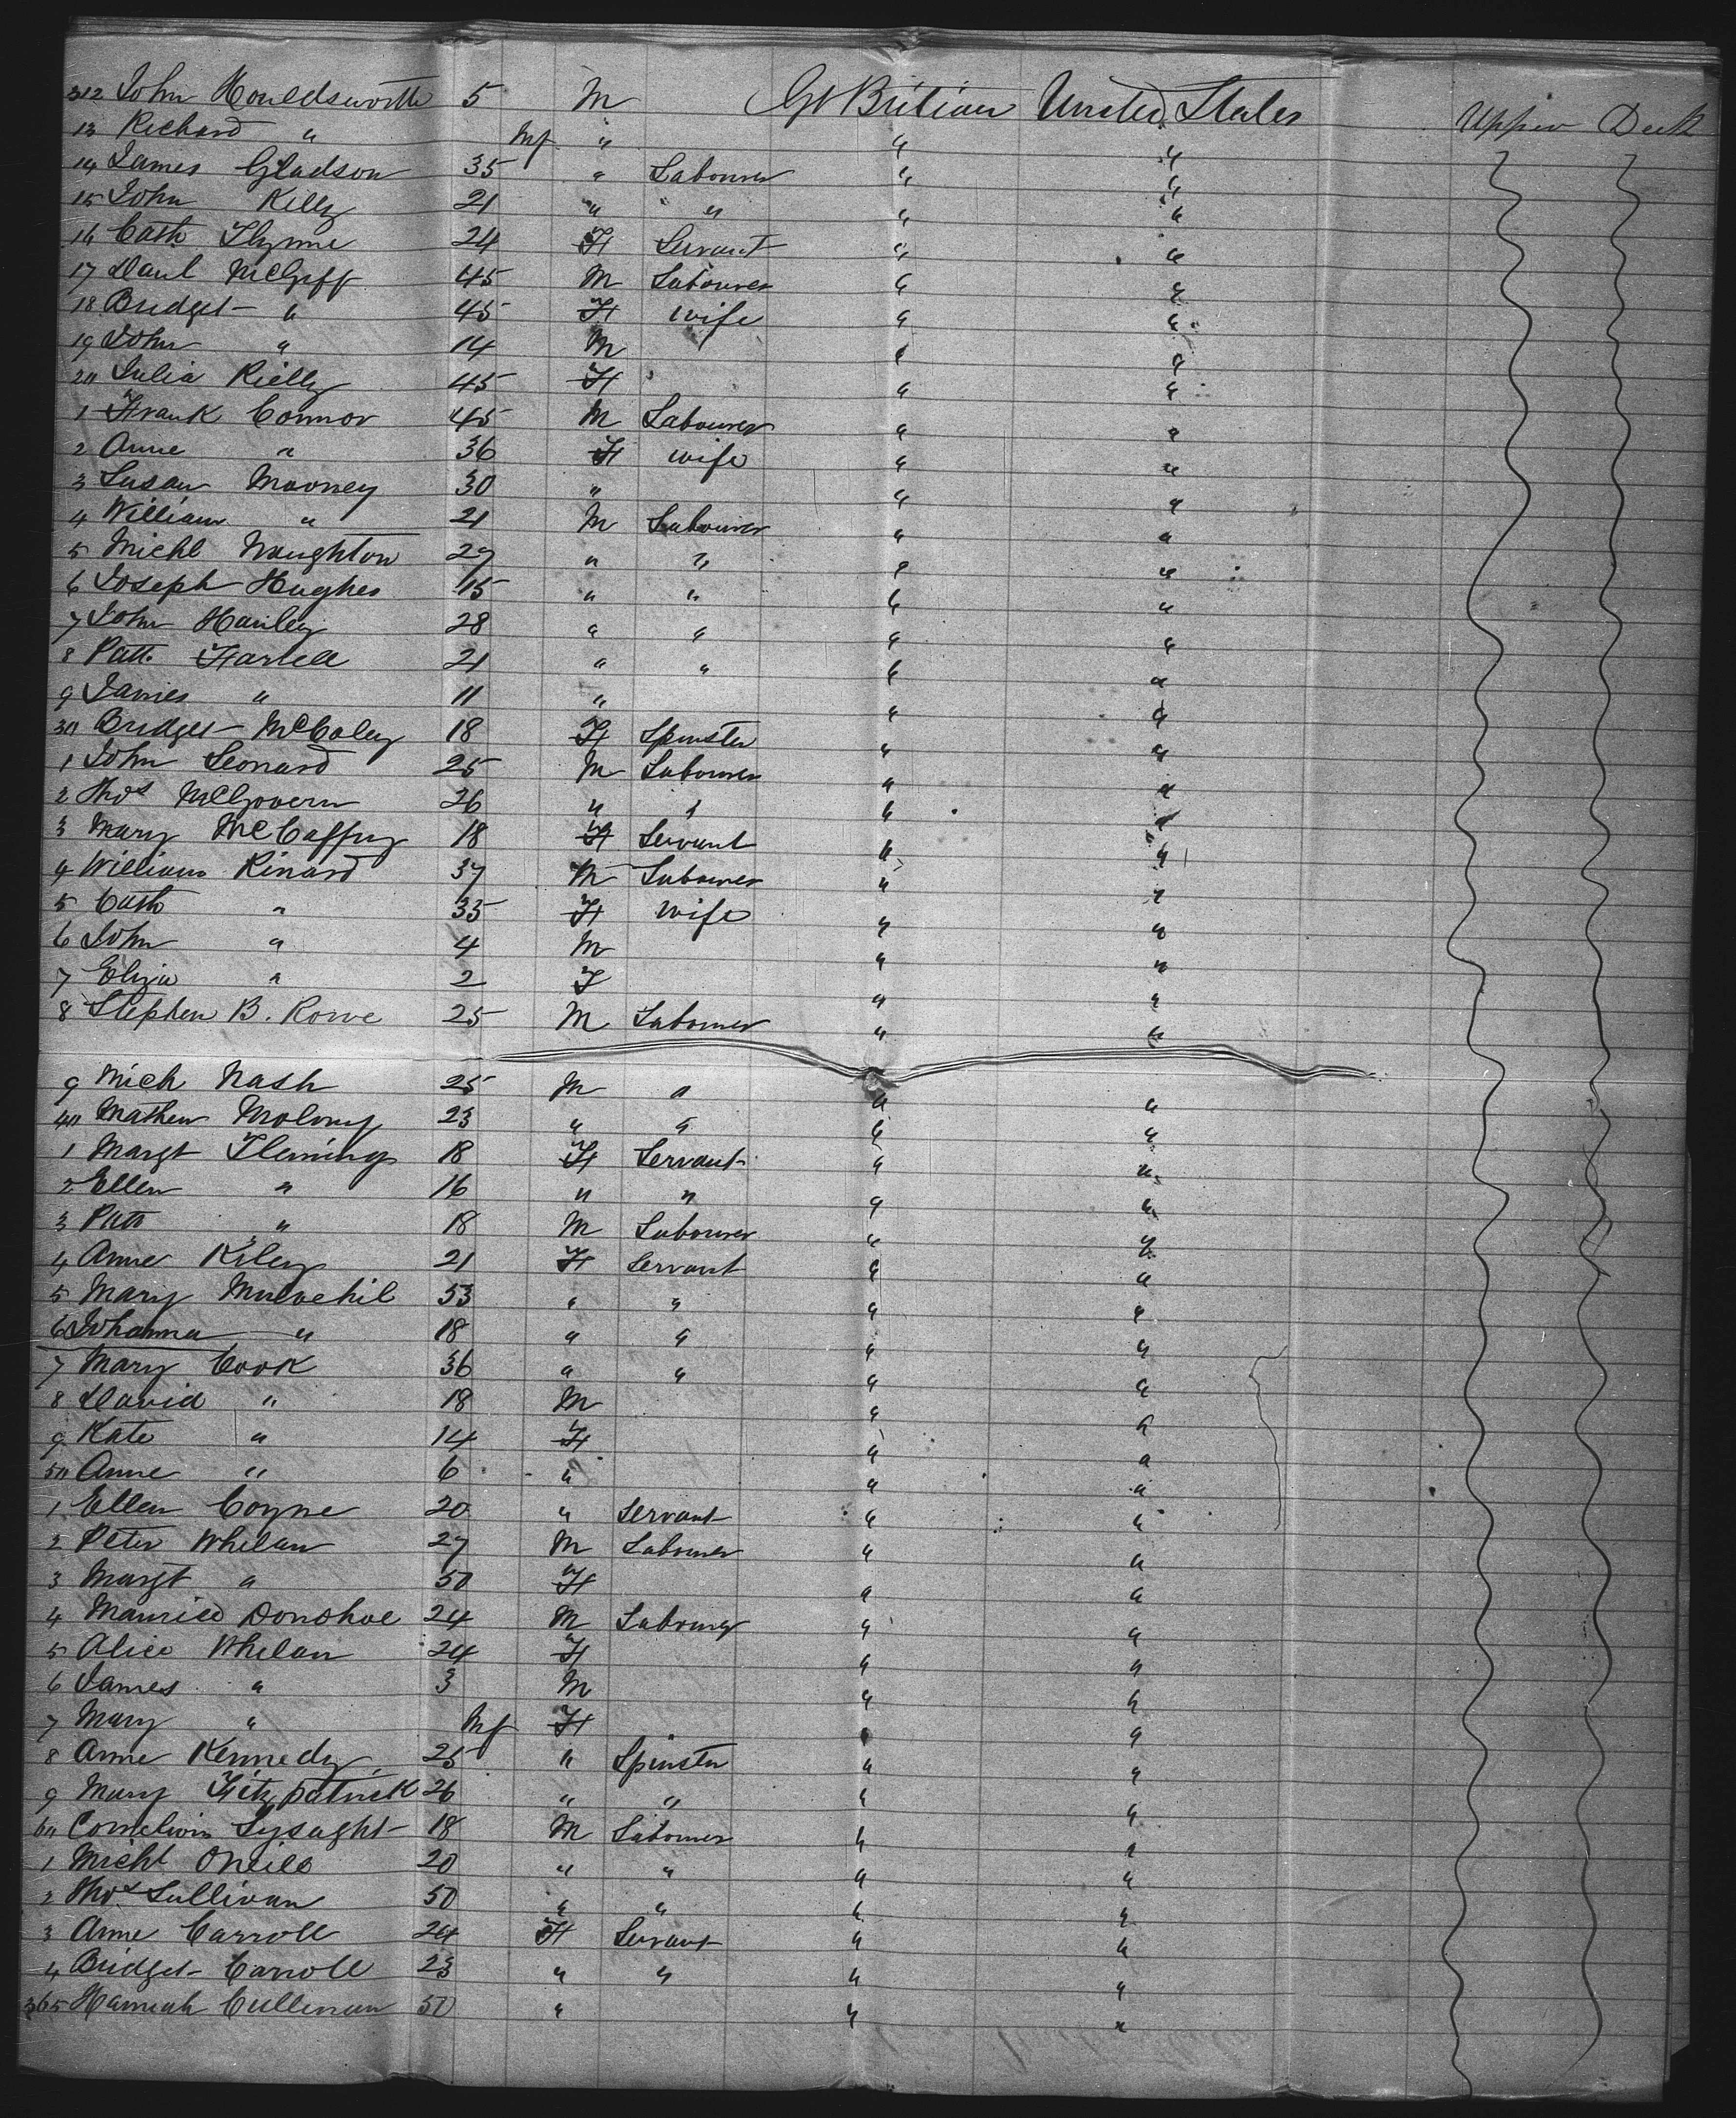 312 John Houldsworth 5 M Gt Britian United States Upper Deck
13 Richard " Inf " " "
14 James Gladson 35 " Labourer " "
15 John Killy 21 " " " "
16 Cath Flynne 24 F Servant " "
17 Danl McGiff 45 M Labourer " "
18 Bridget " 45 F Wife " "
19 John " 14 M " "
20 Julia Rielly 45 F " "
1 Frank Connor 45 M Labourer " "
2 Anne " 36 F Wife " "
3 Susan Mooney 30 " " "
4 William " 21 M Labourer " "
5 Michl Naughton 29 " " " "
6 Joseph Hughes 15 " " " "
7 John Hanley 28 " " " "
8 Patt. Farrell 21 " " " "
9 James " 11 " " "
30 Bridget McColey 18 F Spinster " "
1 John Leonard 25 M Labourer " "
2 Thos McGovern 26 " " " "
3 Mary McCaffry 18 F Servant " "
4 William Rinard 37 M Labourer " "
5 Cath " 35 F Wife " "
6 John " 4 M " "
7 Eliza " 2 F " "
8 Stephen B. Rowe 25 M Labourer " "
9 Mich Nash 25 M " " "
40 Mathew Molony 23 " " " "
1 Margt Fleming 18 F Servant " "
2 Ellen " 16 " " " "
3 Patt " 18 M Labourer " "
4 Anne Kiley 21 F Servant " "
5 Mary Mulvehil 53 " " " "
6 Johanna " 18 " " " "
7 Mary Cook 36 " " " "
8 David " 18 M " "
9 Kate " 14 F " "
50 Anne " 6 " " "
1 Ellen Coyne 20 " Servant " "
2 Peter Whelan 27 M Labourer " "
3 Margt " 50 F " "
4 Maurice Donohoe 24 M Labourer " "
5 Alice Whelan 24 F " "
6 James " 3 M " "
7 Mary " Inf F " "
8 Anne Kennedy 25 " Spinster " "
9 Mary Fitzpatrick 26 " " " "
60 Cornelius Lysaght 18 M Labourer " "
1 Michl ONeill 20 " " " "
2 Thos Sullivan 50 " " " "
3 Anne Carroll 24 F Servant " "
4 Bridget Carroll 23 " " " "
365 Hannah Cullinan 50 " " "